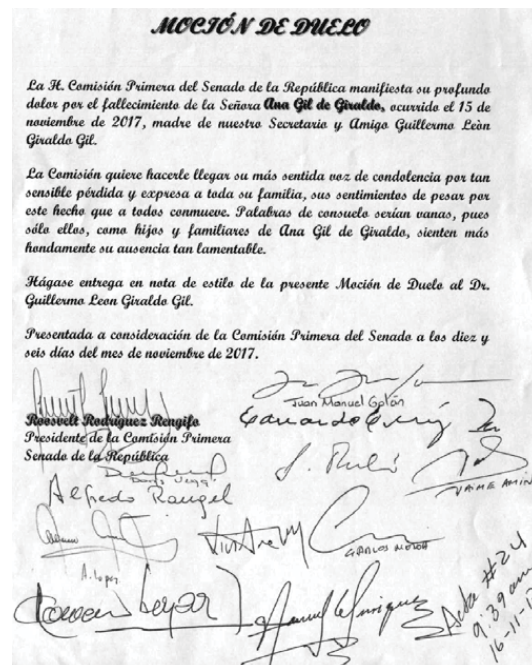 MOCIÓN DE DUELO
La H. Comisión Primera del Senado de la República manifiesta su profundo
dolor por el fallecimiento de la Señora Ana Gil de Giraldo, ocurrido el 15 de
noviembre de 2017, madre de nuestro Secretario y Amigo Guillermo Leòn
Giraldo Gil.
La Comisión quiere hacerle llegar su más sentida voz de condolencia por tan
sensible pérdida y expresa a toda su familia, sus sentimientos de pesar por
este hecho que a todos conmueve. Palabras de consuelo serían vanas, pues
sólo ellos, como hijos y familiares de Ana Gil de Giraldo, sienten más
hondamente su ausencia tan lamentable.
Hágase entrega en nota de estilo de la presente Moción de Duelo al Dr.
Guillermo Leon Giraldo Gil.
Presentada a consideración de la Comisión Primera del Senado a los diez y
seis días del mes de noviembre de 2017.
Juan Manuel Galán
Roosvelt Rodríguez Rengifo
Presidente de la Comisión Primera
Senado de la República
Alfredo Rangel
JAIME AMIN
A. Lopez
Acta #24
9:39 am
16-11-